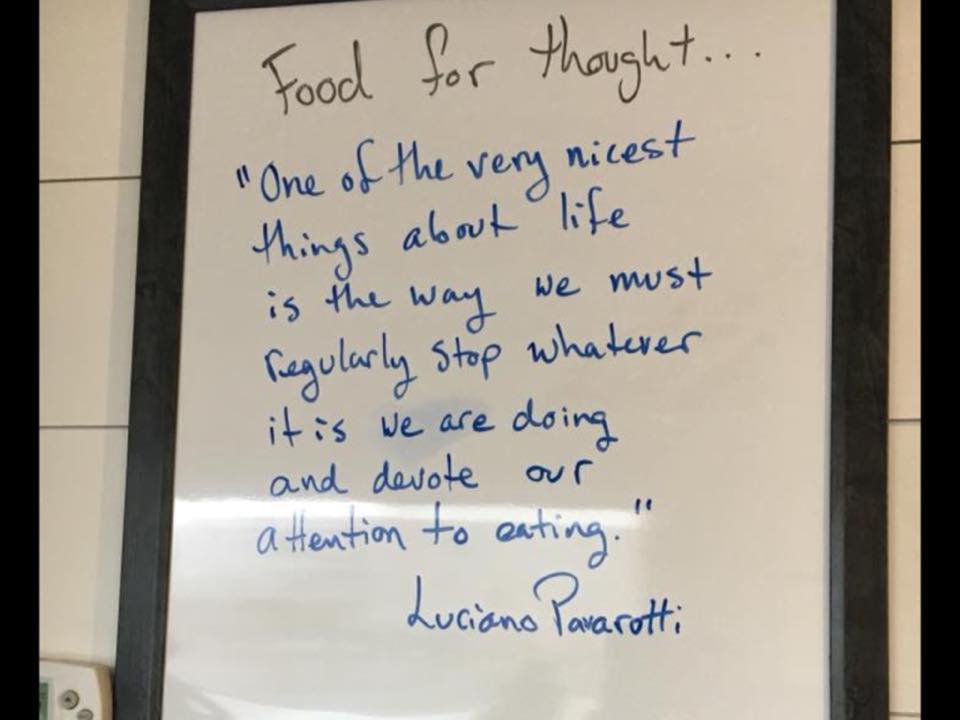 Food for thought...
"One of the very nicest
things about life
is the way we must
regularly stop whatever
it is we are doing
and devote our
attention to eating."
Luciano Pavarotti